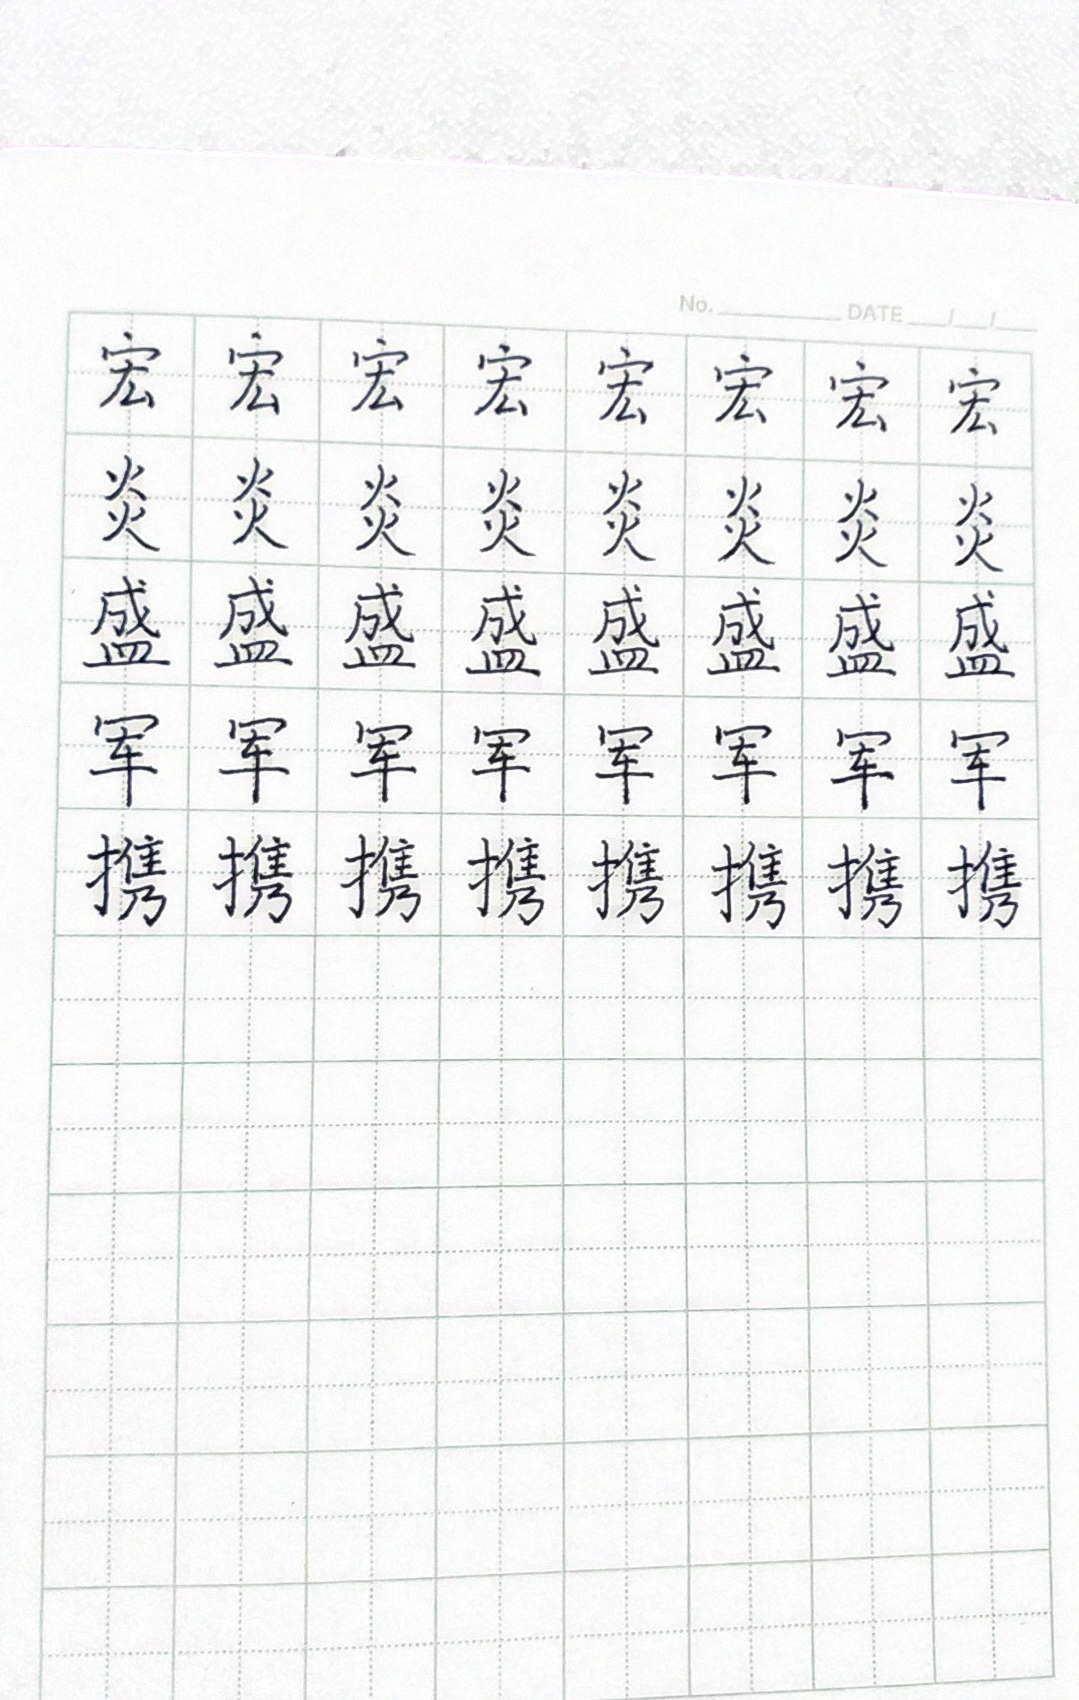 No. DATE / /
宏 宏 宏 宏 宏 宏 宏 宏
炎 炎 炎 炎 炎 炎 炎 炎
盛 盛 盛 盛 盛 盛 盛 盛
军 军 军 军 军 军 军 军
携 携 携 携 携 携 携 携